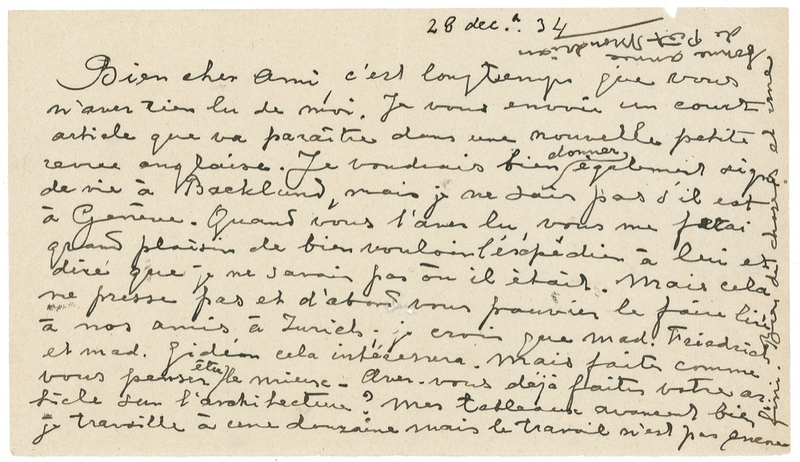 28 dec. 34
Bien cher ami, c'est longtemps que vous
n'avez rien lu de moi. Je vous envoie un court
article que va paraître dans une nouvelle petite
revue anglaise. Je voudrais bien donner également signe
de vie à Backlund, mais je ne sais pas s'il est
à Genève. Quand vous l'avez lu, vous me ferai
grand plaisir de bien vouloir l'éxpédier à lui et
diré que je ne savais pas où il était. Mais cela
ne presse pas et d'abord vous pouvier le faire lire
à nos amis à Zurich. je crois que mad. Friedrich
et mad. Gidéon cela intéresera. Mais faites comme
vous penser être le mieux. Avez-vous déjà faites votre ar-
ticle sur l'architecture? Mes tableaux avancent bien
je travaille à une douzaine mais le travail n'est pas encore
fini. Bien de choses et une
bonne année
de Piet Mondrian